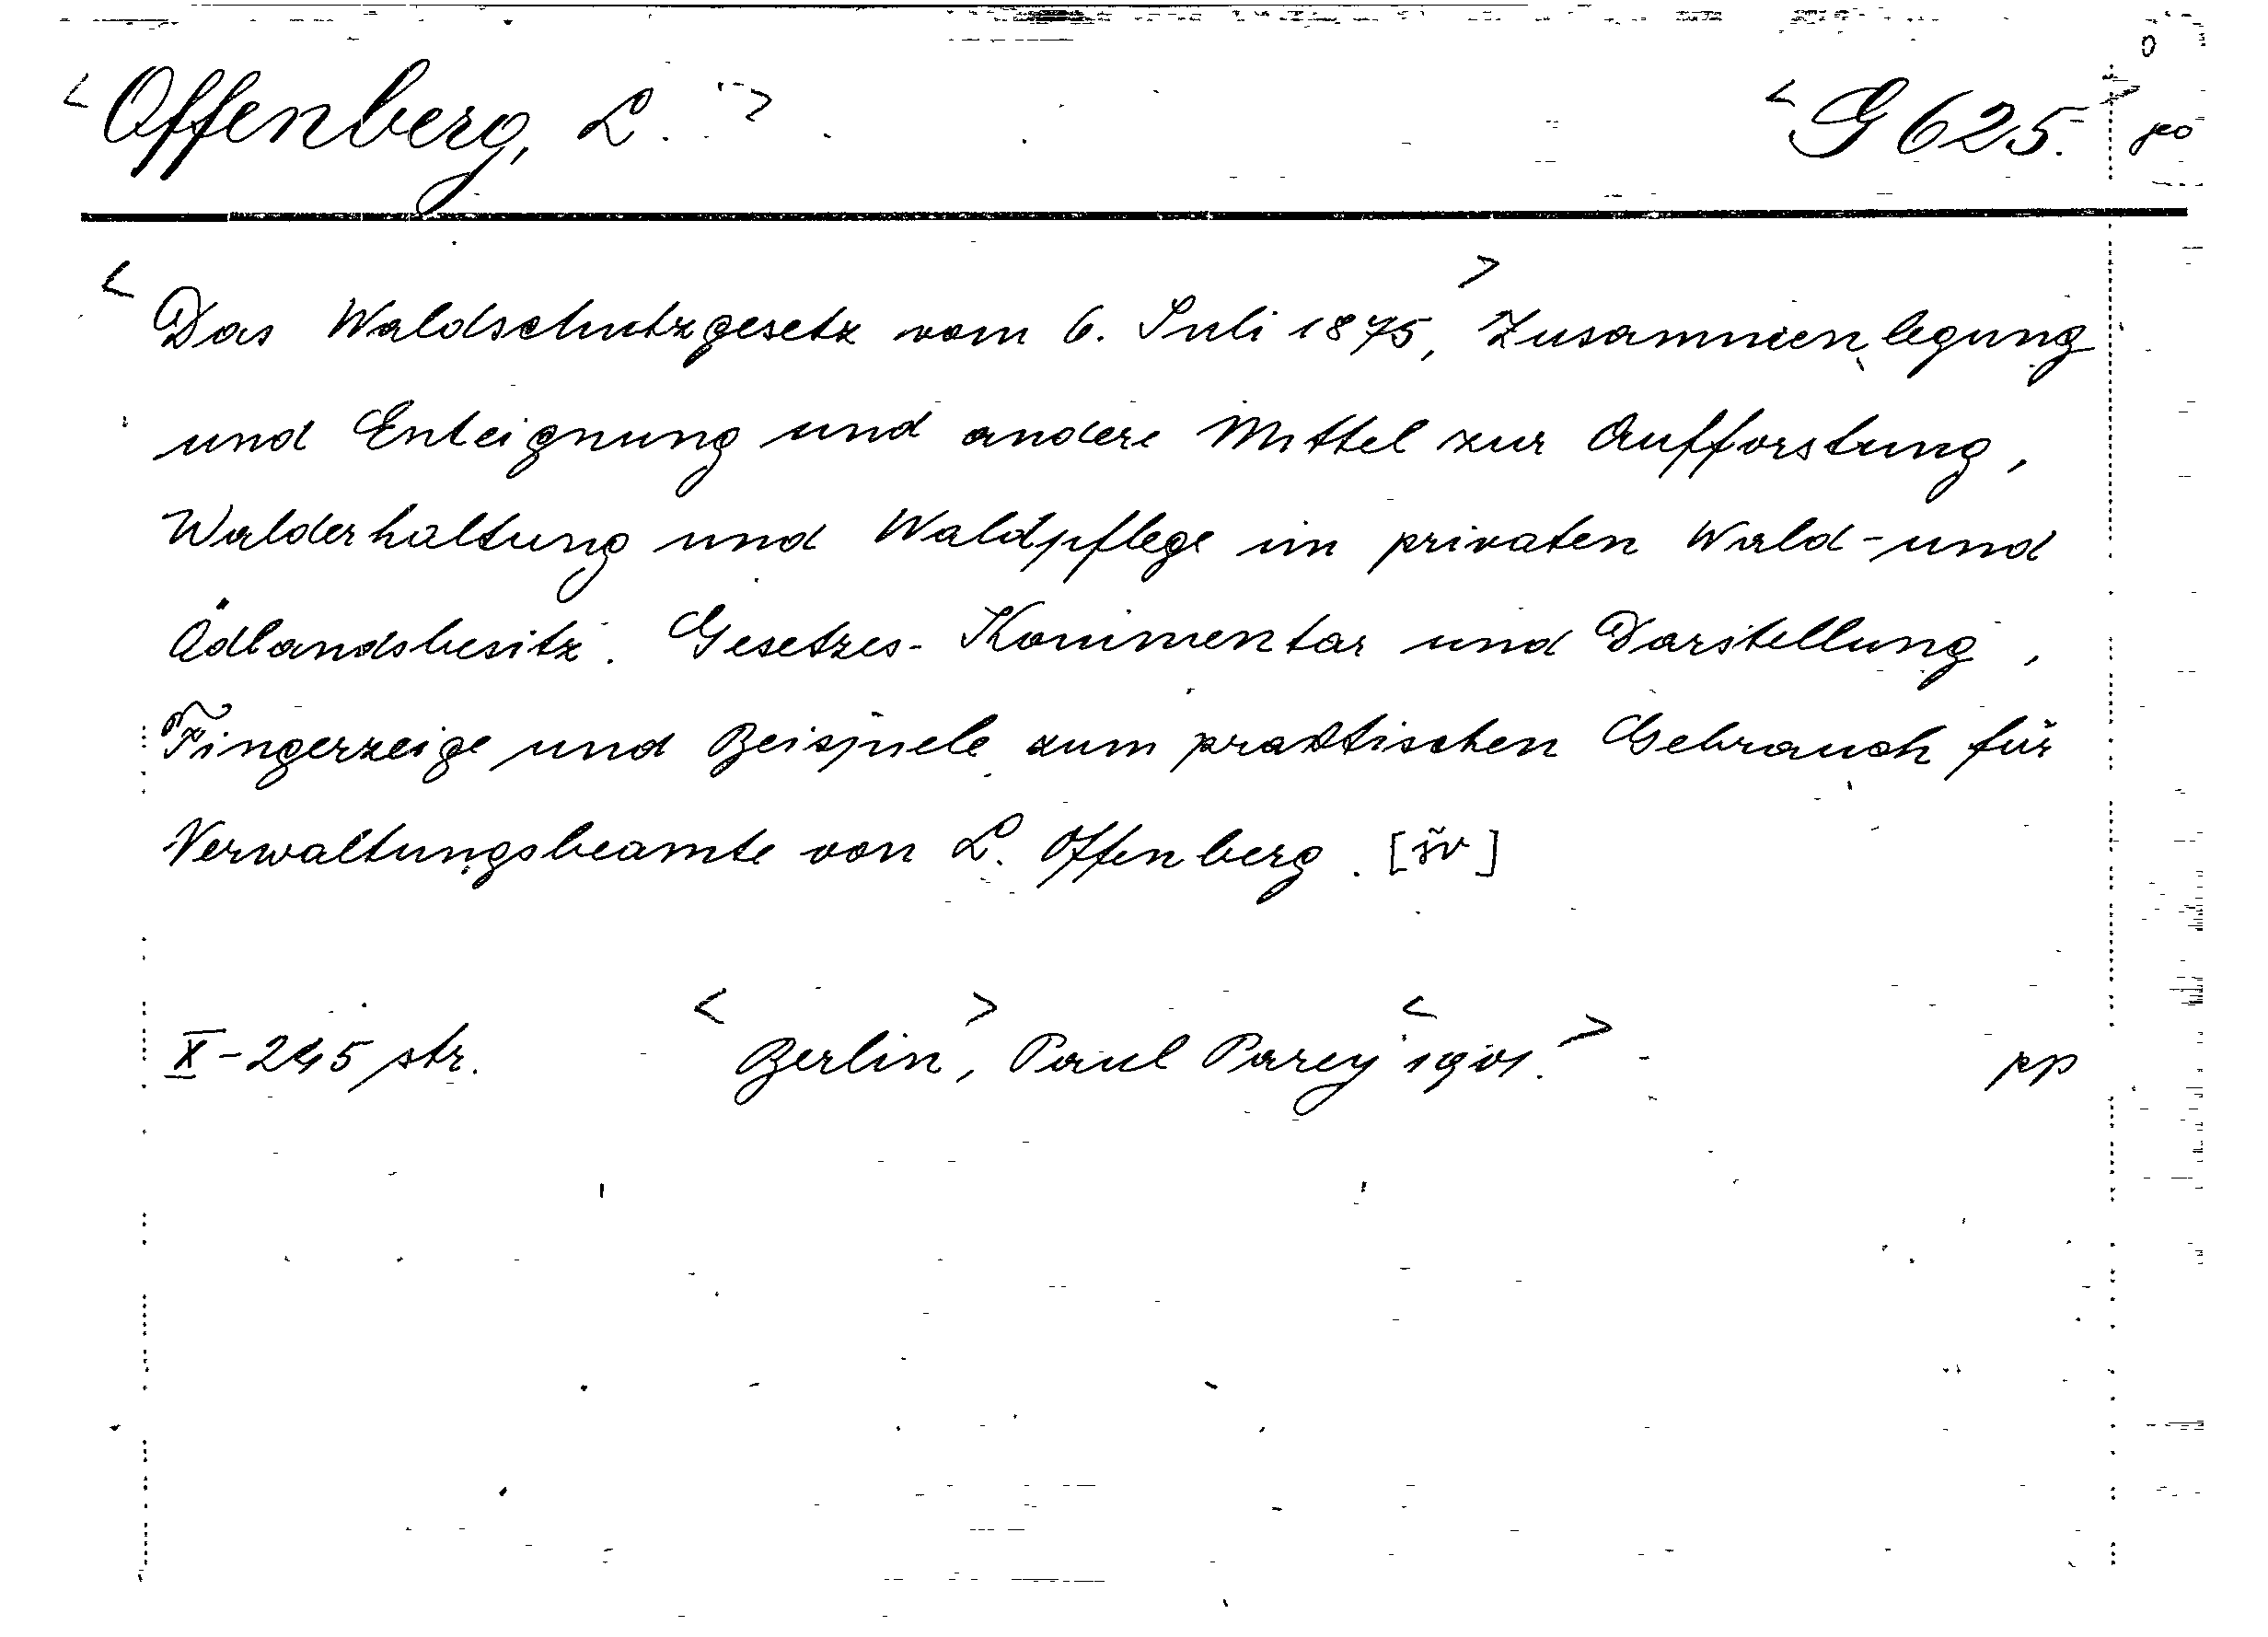 <Offenberg, L.> <G 625.>
<Das Waldschutzgesetz vom 6. Juli 1875,> Zusammenlegung
und Enteignung und andere Mittel zur Aufforstung,
Walderhaltung und Waldpflege im privaten Wald- und
Ödlandsbesitz. Gesetzes-Kommentar und Darstellung,
Fingerzeige und Beispiele zum praktischen Gebrauch für
Verwaltungsbeamte von L. Offenberg. [šv]
X-245 str. <Berlin>, Paul Parey <1901.> pp